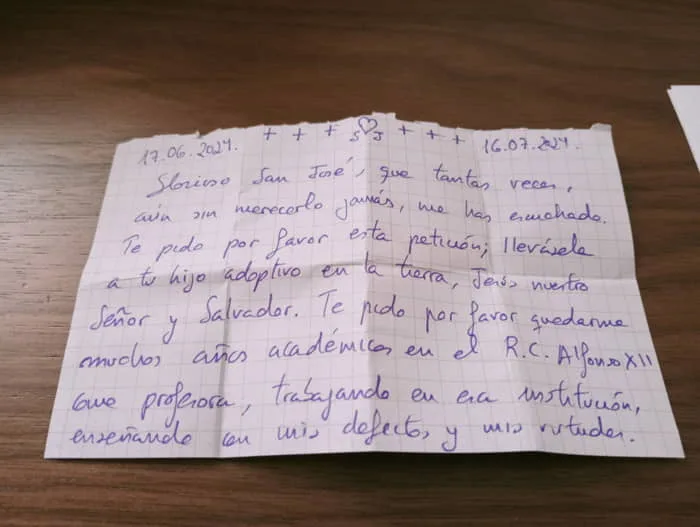 17.06.2024. + + + S ♡ J + + + 16.07.2024.
Glorioso San José, que tantas veces,
aún sin merecerlo jamás, me has escuchado.
Te pido por favor esta petición; llevásela
a tu hijo adoptivo en la tierra, Jesús nuestro
Señor y Salvador. Te pido por favor quedarme
muchos años académicos en el R.C. Alfonso XII
como profesora, trabajando en esa institución,
enseñando con mis defectos y mis virtudes.